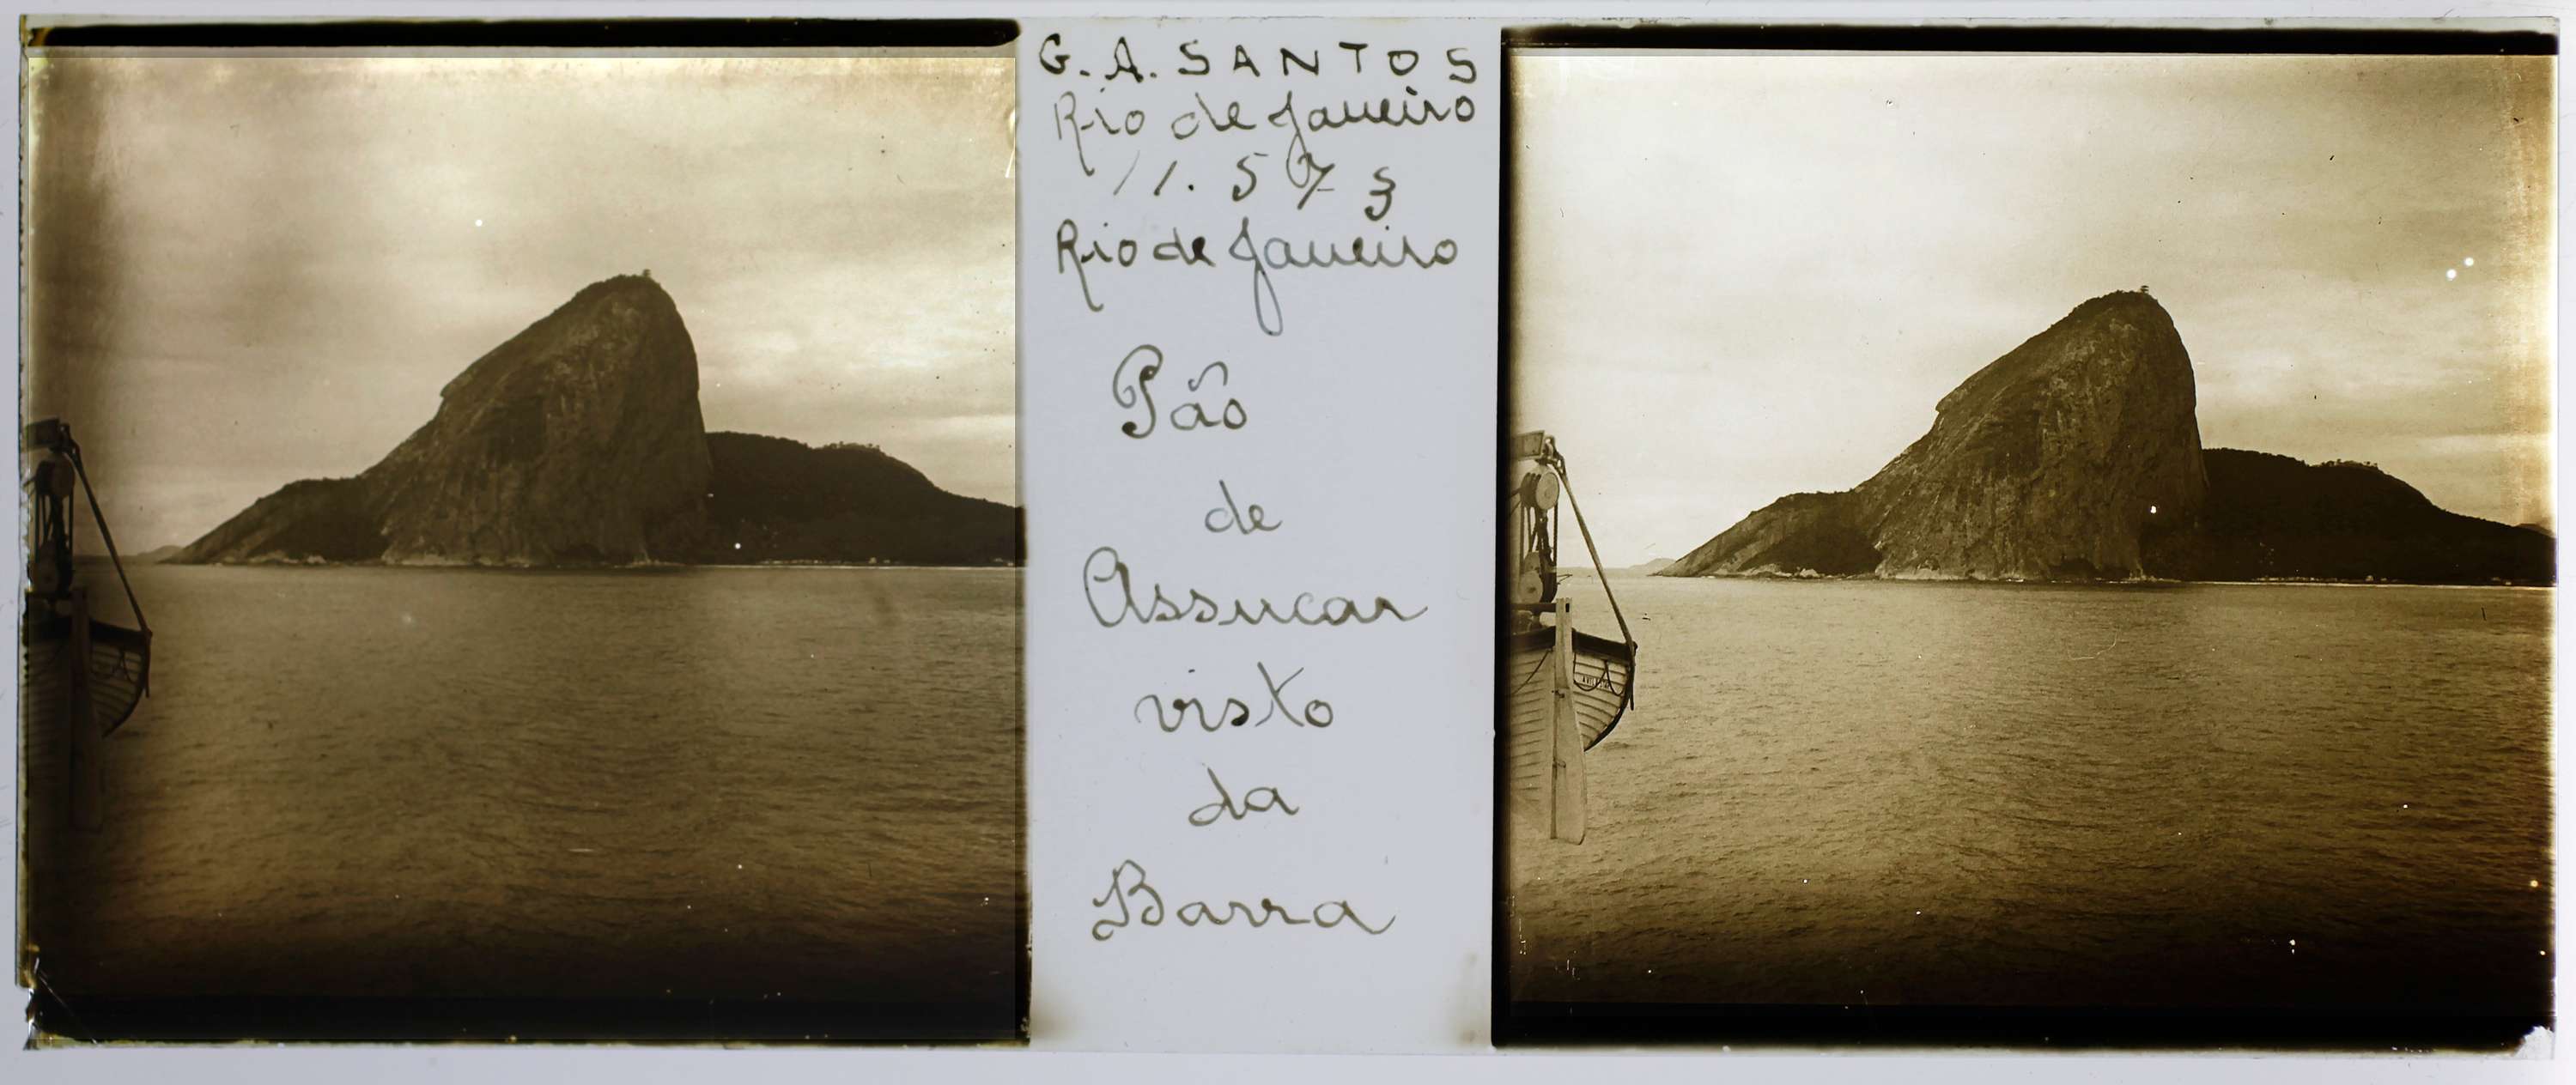 G. A. SANTOS
Rio de Janeiro
11.573
Rio de Janeiro
Pão
de
Assucar
visto
da
Barra